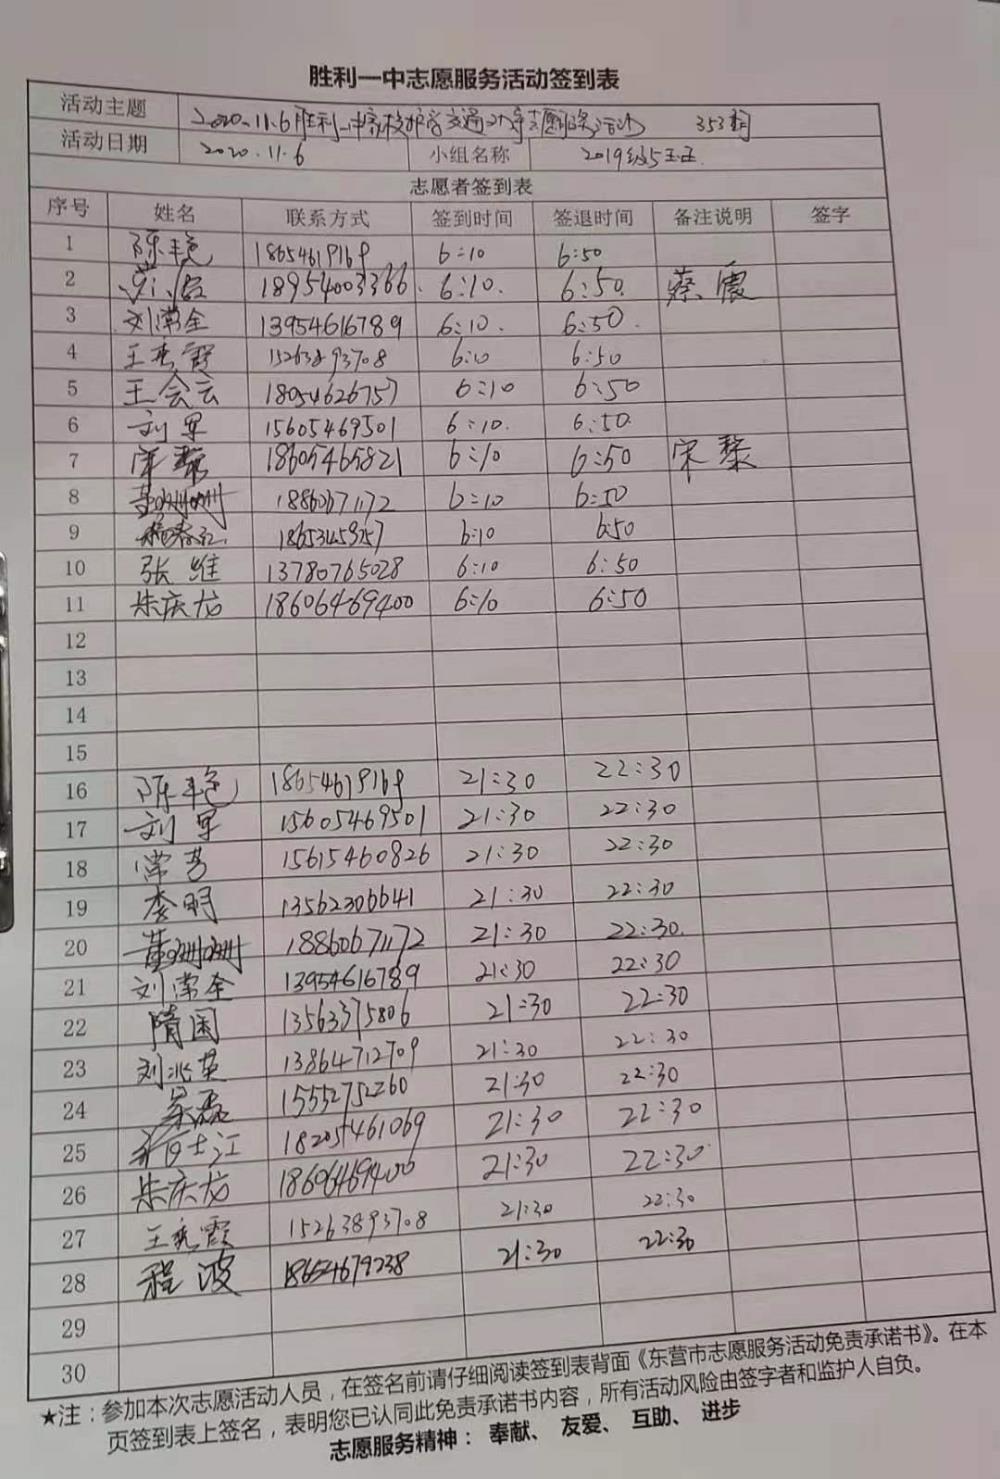 胜利一中志愿服务活动签到表
活动主题 2020.11.6胜利一中高校护学交通 志愿服务活动 353期
活动日期 2020.11.6 小组名称 2019级5
志愿者签到表
序号 姓名 联系方式 签到时间 签退时间 备注说明 签字
1 陈艳 18654619169 6:10 6:50
2 18954003366 6:10. 6:50. 蔡震
3 刘常全 13954616789 6:10. 6:50.
4 王秀霞 15263893708 6:10 6:50
5 王会云 18054626757 6:10 6:50
6 刘军 15605469501 6:10. 6:50.
7 宋黎 18605465821 6:10 6:50 宋黎
8 董洲洲 18860671172 6:10 6:50
9 6:10 6:50
10 张维 13780765028 6:10 6:50
11 朱庆龙 18606469400 6:10 6:50
12
13
14
15
16 陈艳 18654619169 21:30 22:30
17 刘军 15605469501 21:30 22:30
18 常芳 15615460826 21:30 22:30
19 李明 13562306641 21:30 22:30
20 董洲洲 18860671172 21:30 22:30.
21 刘常全 13954616789 21:30 22:30
22 隋国 13563375806 21:30 22:30
23 刘兆英 13864712709 21:30 22:30
24 15552752260 21:30 22:30
25 18205461069 21:30 22:30
26 朱庆龙 18606469400 21:30 22:30
27 王秀霞 15263893708 21:30 22:30
28 程波 18654679238 21:30 22:30
29
30
★注：参加本次志愿活动人员，在签名前请仔细阅读签到表背面《东营市志愿服务活动免责承诺书》。在本
页签到表上签名，表明您已认同此免责承诺书内容，所有活动风险由签字者和监护人自负。
志愿服务精神：奉献、友爱、互助、进步